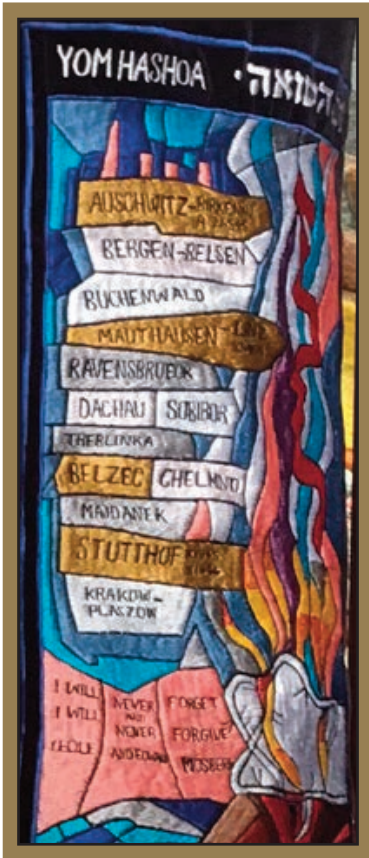 YOM HASHOA · השואה
AUSCHWITZ-
BERGEN-BELSEN
BUCHENWALD
MAUTHAUSEN-
RAVENSBRUECK
DACHAU SOBIBOR
TREBLINKA
BELZEC CHELMNO
MAJDANEK
STUTTHOF
KRAKOW-
PLASZOW
I WILL NEVER FORGET
AND
I WILL NEVER FORGIVE
MOSBERG